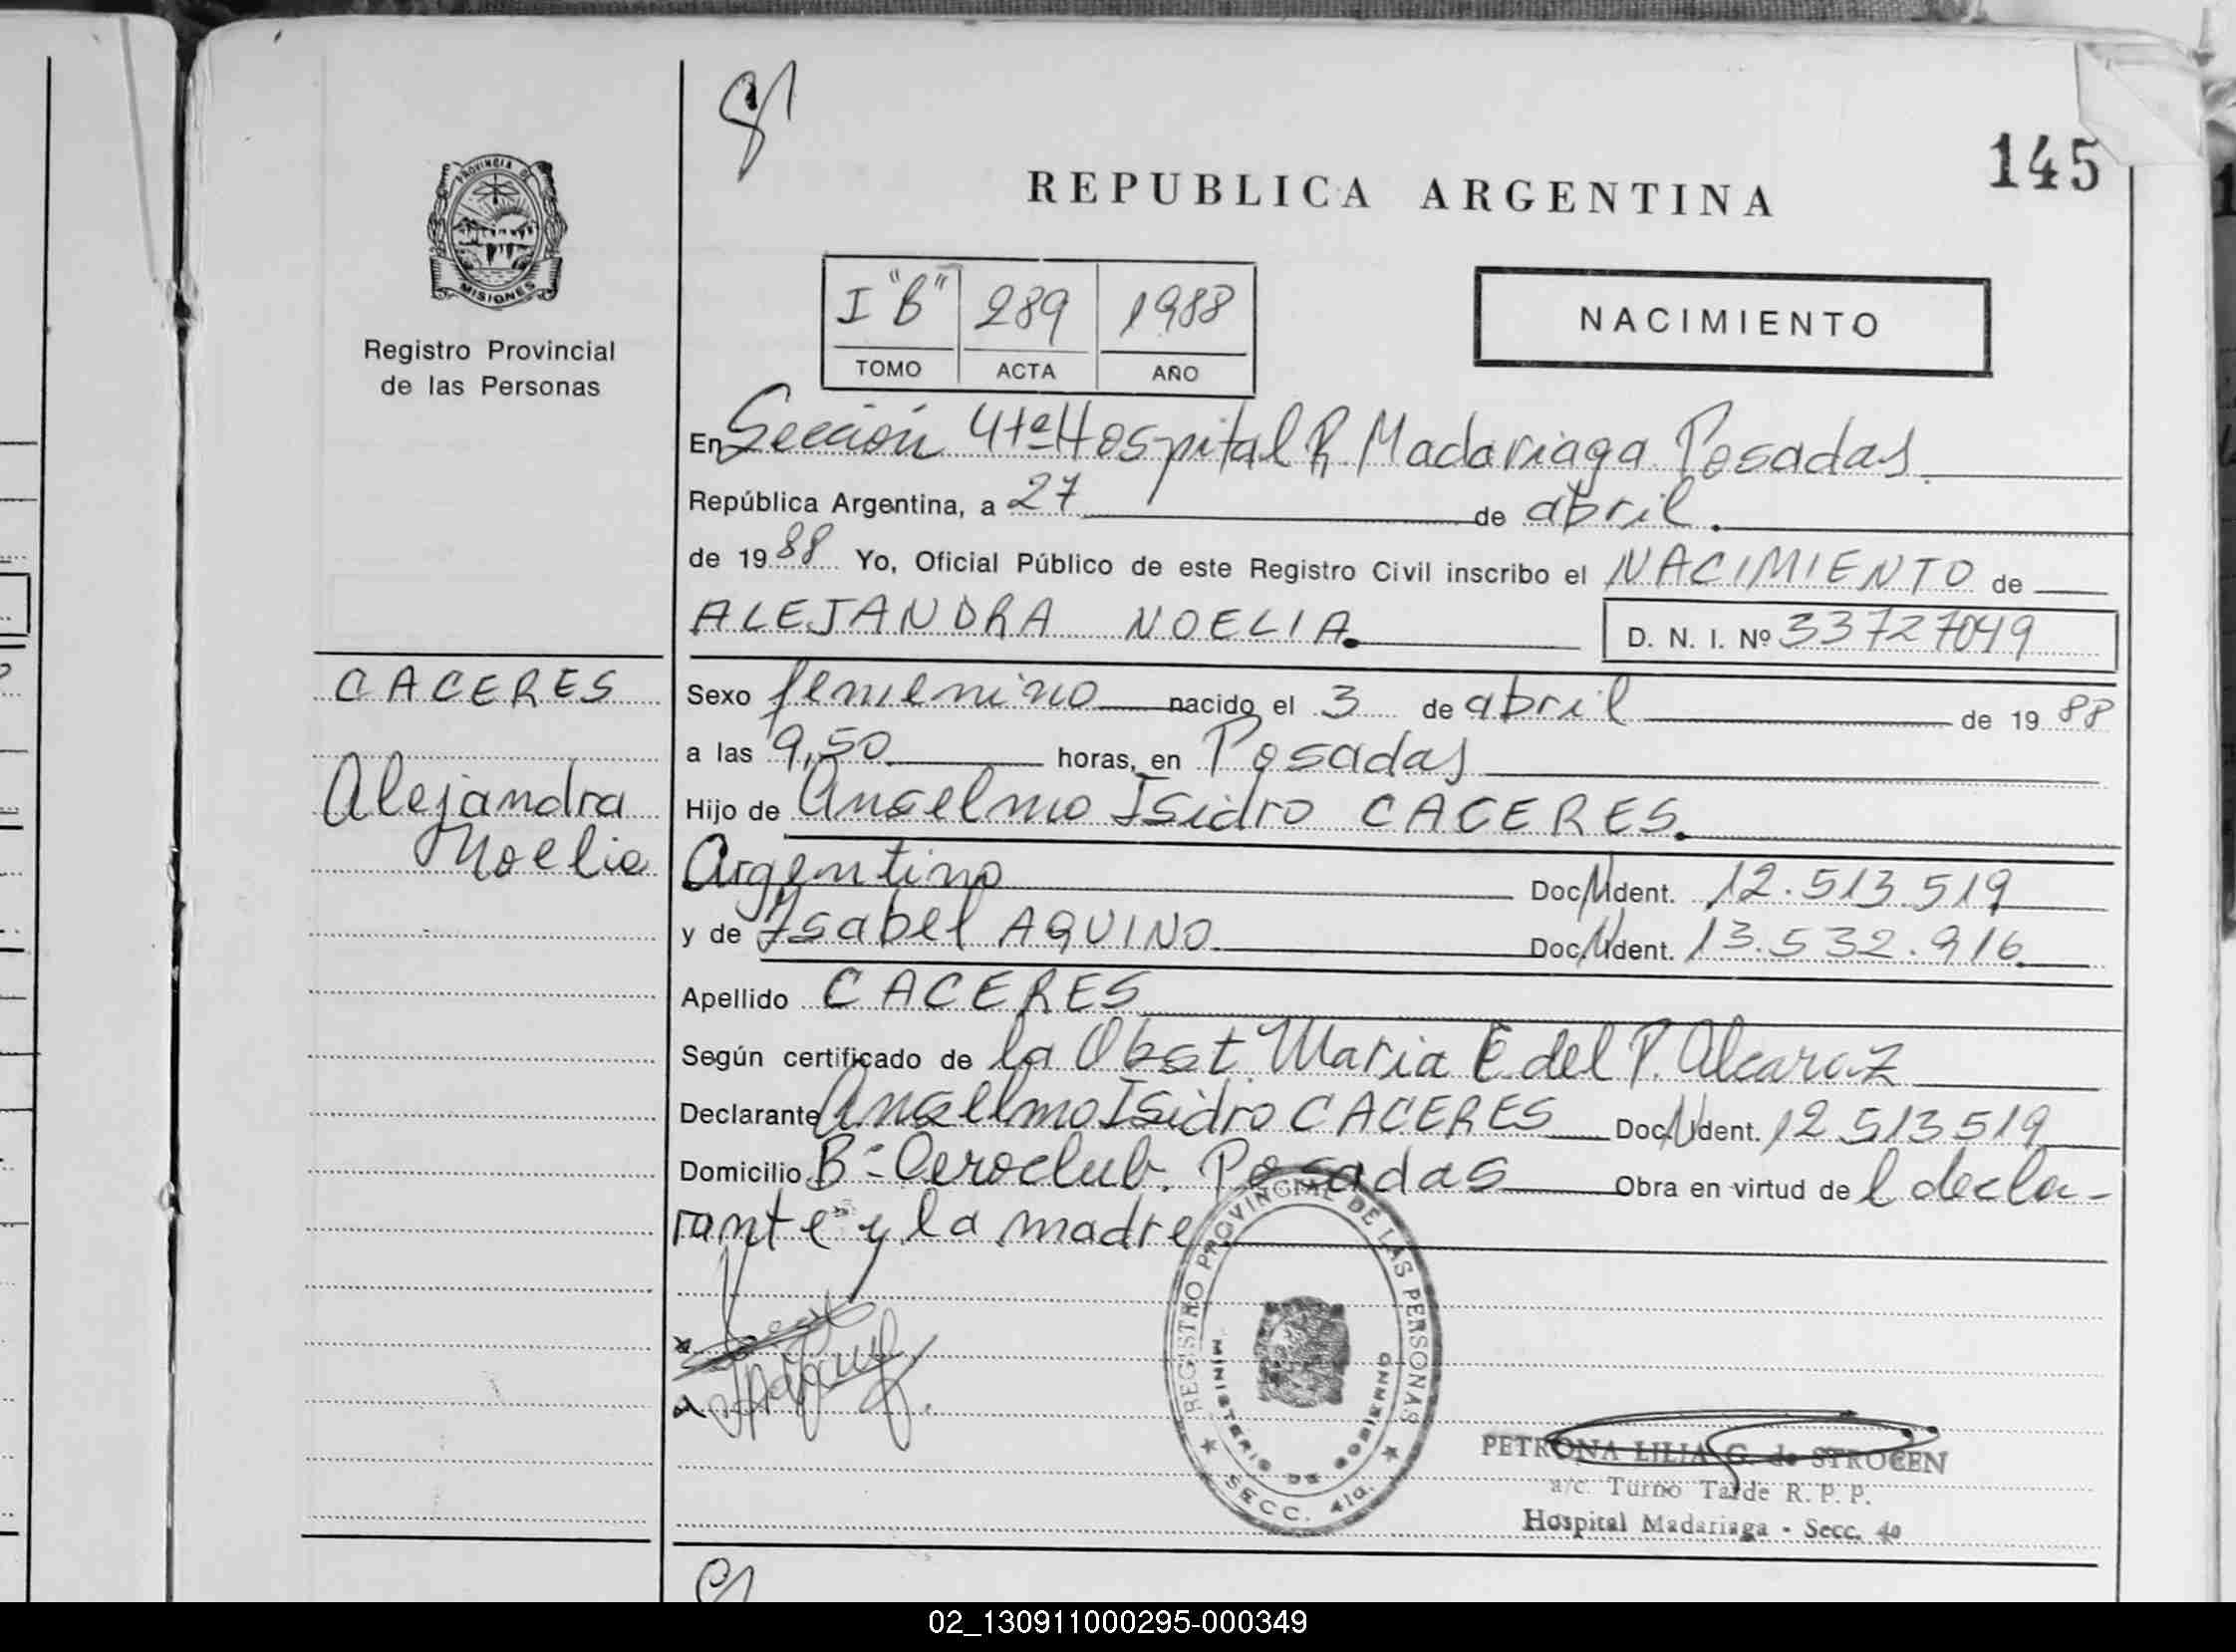 145
REPUBLICA ARGENTINA
PROVINCIA DE
MISIONES
Registro Provincial
de las Personas
I "B" 289 1988
TOMO ACTA AÑO
NACIMIENTO
En Sección 4ta Hospital R. Madariaga Posadas
República Argentina, a 27 de abril.
de 1988 Yo, Oficial Público de este Registro Civil inscribo el NACIMIENTO de
ALEJANDRA NOELIA. D. N. I. Nº 33727049
CACERES
Alejandra
Noelia
Sexo femenino nacido el 3 de abril de 1988
a las 9,50 horas, en Posadas
Hijo de Anselmo Isidro CACERES.
Argentino Doc. N. Ident. 12.513.519
y de Ysabel AQUINO Doc. N. Ident. 13.532.916
Apellido CACERES
Según certificado de la Obst. Maria E del P. Alcaraz
Declarante Anselmo Isidro CACERES Doc. N. Ident. 12 513 519
Domicilio Bº Aeroclub. Posadas Obra en virtud de l decla-
rante y la madre
REGISTRO PROVINCIAL DE LAS PERSONAS
MINISTERIO DE GOBIERNO
SECC. 4ta.
PETRONA LILIA G. de STROCEN
a/c. Turno Tarde R. P. P.
Hospital Madariaga - Secc. 4a
02_130911000295-000349